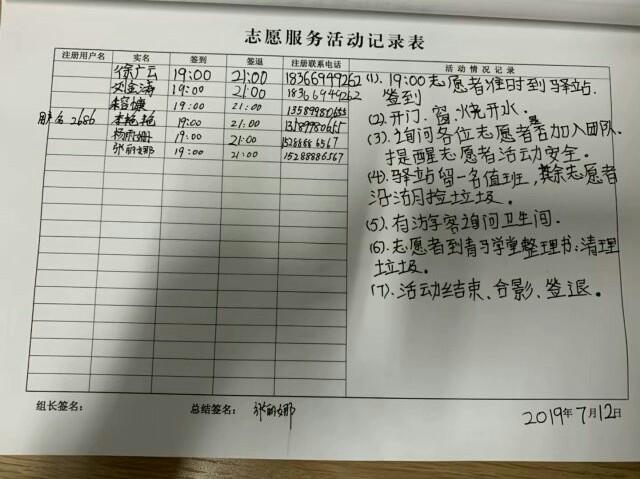 志愿服务活动记录表
注册用户名 实名 签到 签退 注册联系电话 活动情况记录
徐广云 19:00 21:00 18366949262
刘金涛 19:00 21:00 18366949262
19:00 21:00
用户名2686 李艳艳 19:00 21:00
19:00 21:00 15288886567
张丽娜 19:00 21:00 15288886567
(1). 19:00志愿者准时到驿站.
签到
(2). 开门、窗、烧开水.
(3). 询问各位志愿者是否加入团队.
提醒志愿者活动安全.
(4). 驿站留一名值班,其余志愿者
沿沽月捡垃圾.
(5). 有访客询问卫生间.
(6). 志愿者到青马学堂整理书;清理
垃圾。
(7). 活动结束、合影、签退。
组长签名: 总结签名: 张丽娜 2019年7月12日